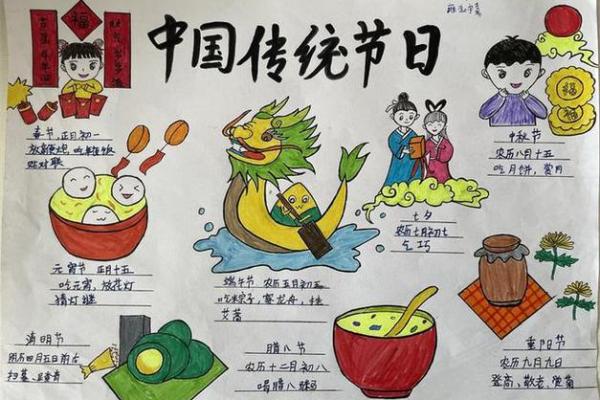 中国传统节日
福
春节,正月初一
放鞭炮,吃年夜饭
贴对联
元宵节 正月十五
吃元宵,放花灯
猜灯谜
清明节
阳历四月五日前后
扫墓、踏青
端午节 农历五月初五
吃粽子,赛龙舟,挂
艾蒿
腊八节
农历十二月初八
喝腊八粥
七夕
农历七月初七
乞巧
中秋节
农历八月十五
吃月饼,赏月
福
福
重阳节
农历九月九
登高、敬老、赏菊